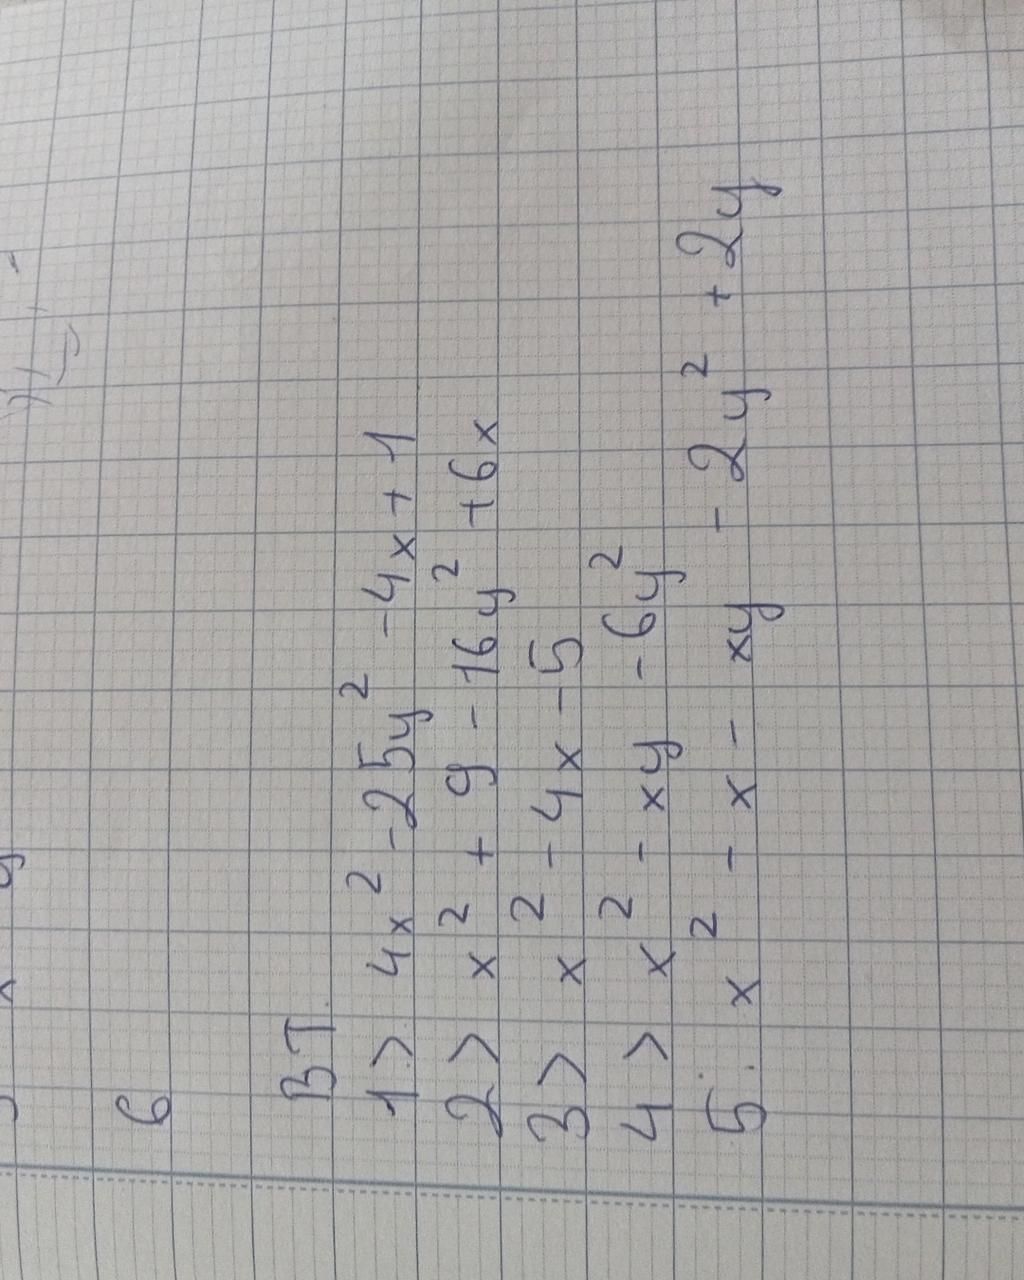 6
BT
1> 4x² - 25y² - 4x + 1
2> x² + 9 - 16y² + 6x
3> x² - 4x - 5
4> x² - xy - 6y²
5: x² - x - xy - 2y² + 2y